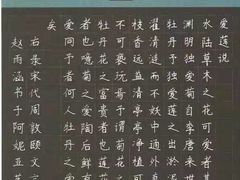 爱莲说
水陆草木之花可爱者甚
渊明独爱菊自李唐来世
牡丹予独爱莲之出淤
濯清涟而不妖中通外直
枝香远益清亭亭净植可
不可亵玩焉予谓菊花之
牡丹花之富贵者也莲花
者也噫菊之爱陶后鲜有
爱同予者何人牡丹之爱
矣
右录宋代周敦颐文
赵雨涵书于阿妮亚